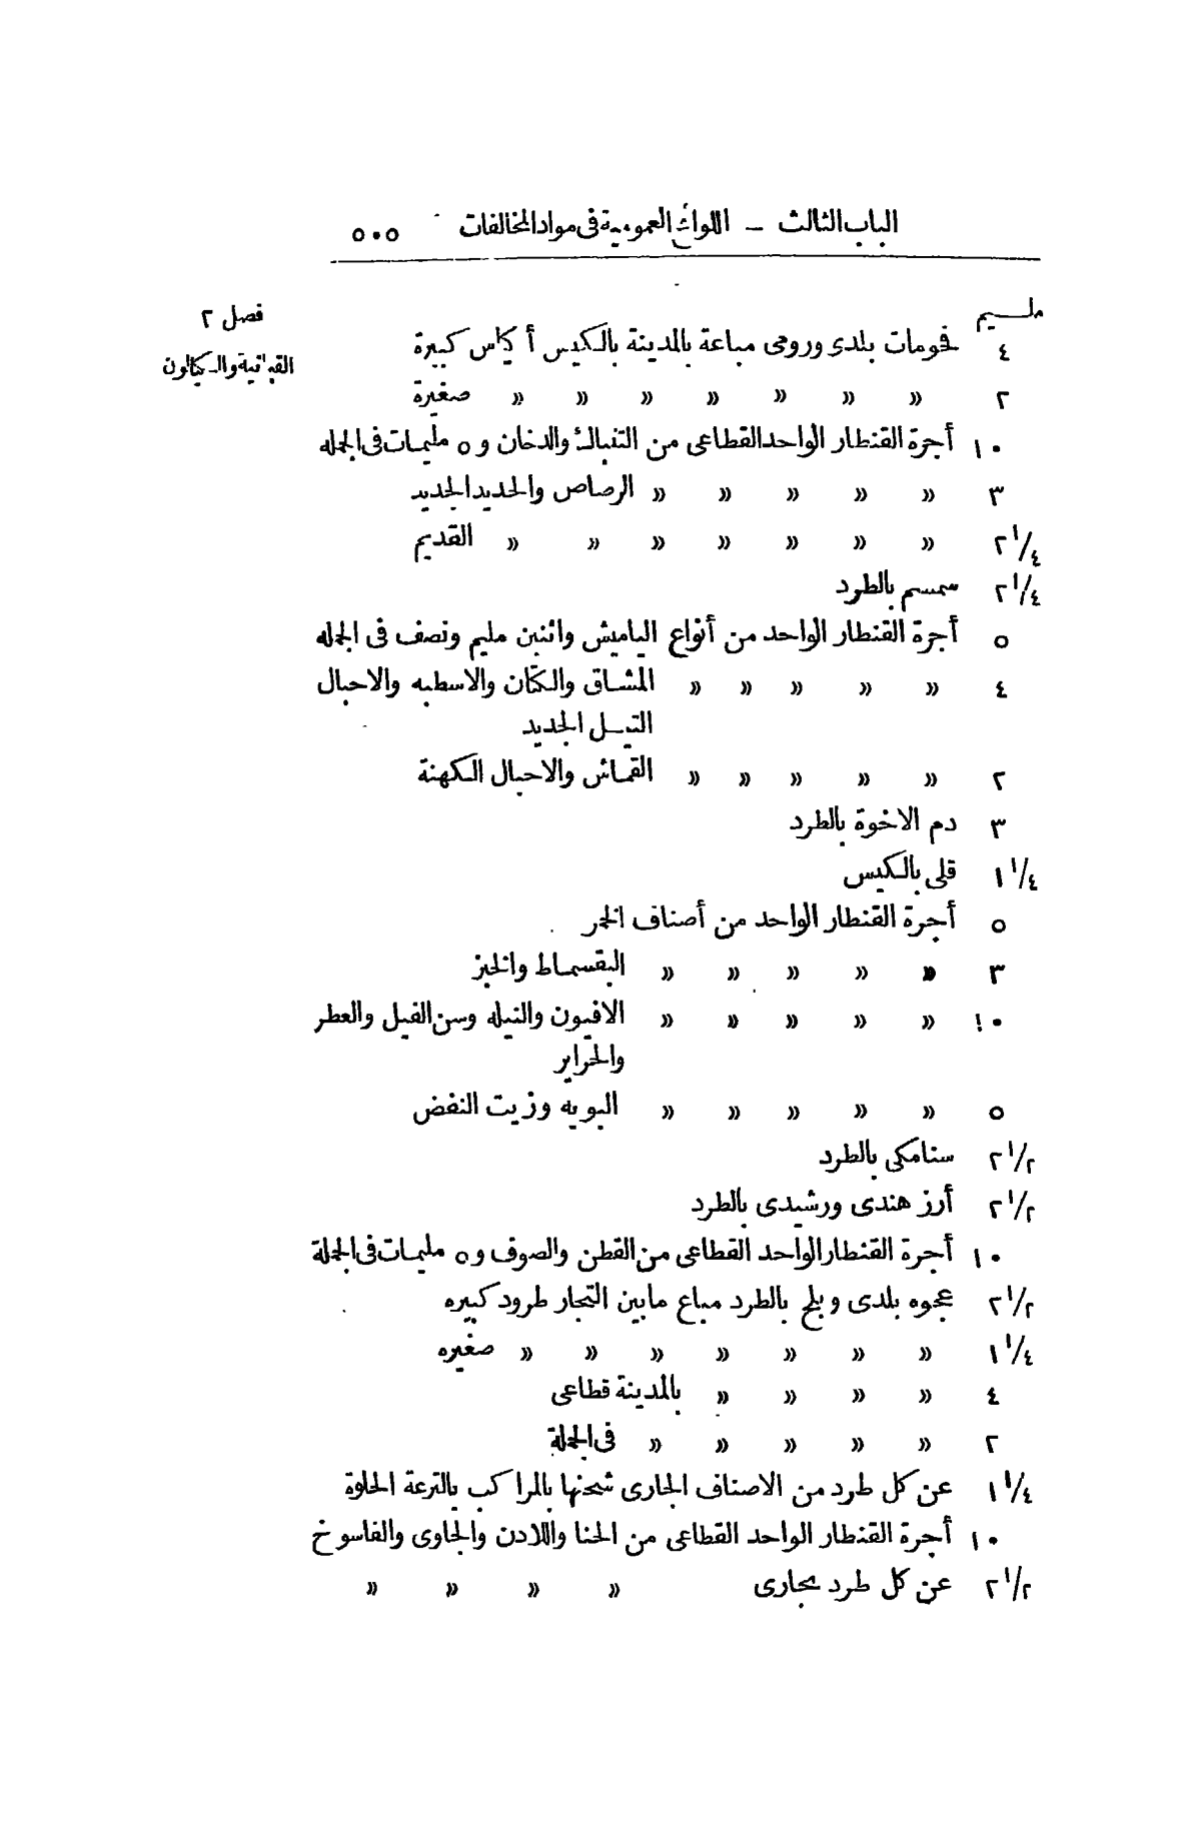 الباب الثالث — اللوائح العمومية فى مواد المخالفات ٥٠٥
فصل ٢
القبانية والكيالون
مليم
٤ فحومات بلدى ورومى مباعة بالمدينة بالكيس أكياس كبيرة
٢ » » » » » » » صغيرة
١٠ أجرة القنطار الواحد القطاعى من التنباك والدخان و ٥ مليمات فى الجمله
٣ » » » » » الرصاص والحديد الجديد
٢ ١/٤ » » » » » » » القديم
٢ ١/٤ سمسم بالطرد
٥ أجرة القنطار الواحد من أنواع الياميش واثنين مليم ونصف فى الجمله
٤ » » » » » المشاق والكتان والاسطبه والاحبال
التيل الجديد
٢ » » » » » القماش والاحبال الكهنة
٣ دم الاخوة بالطرد
١ ١/٤ قلى بالكيس
٥ أجرة القنطار الواحد من أصناف الخمر
٣ » » » » » البقسماط والخبز
١٠ » » » » » الافيون والنيله وسن الفيل والعطر
والحراير
٥ » » » » » البويه وزيت النفض
٢ ١/٢ سنامكى بالطرد
٢ ١/٢ أرز هندى ورشيدى بالطرد
١٠ أجرة القنطار الواحد القطاعى من القطن والصوف و ٥ مليمات فى الجملة
٢ ١/٢ عجوه بلدى وبلح بالطرد مباع مابين التجار طرود كبيره
١ ١/٤ » » » » » » » صغيره
٤ » » » » بالمدينة قطاعى
٢ » » » » » فى الجملة
١ ١/٤ عن كل طرد من الاصناف الجارى شحنها بالمراكب بالترعة الحلوة
١٠ أجرة القنطار الواحد القطاعى من الحنا واللادن والجاوى والفاسوخ
٢ ١/٢ عن كل طرد بحارى » » » »